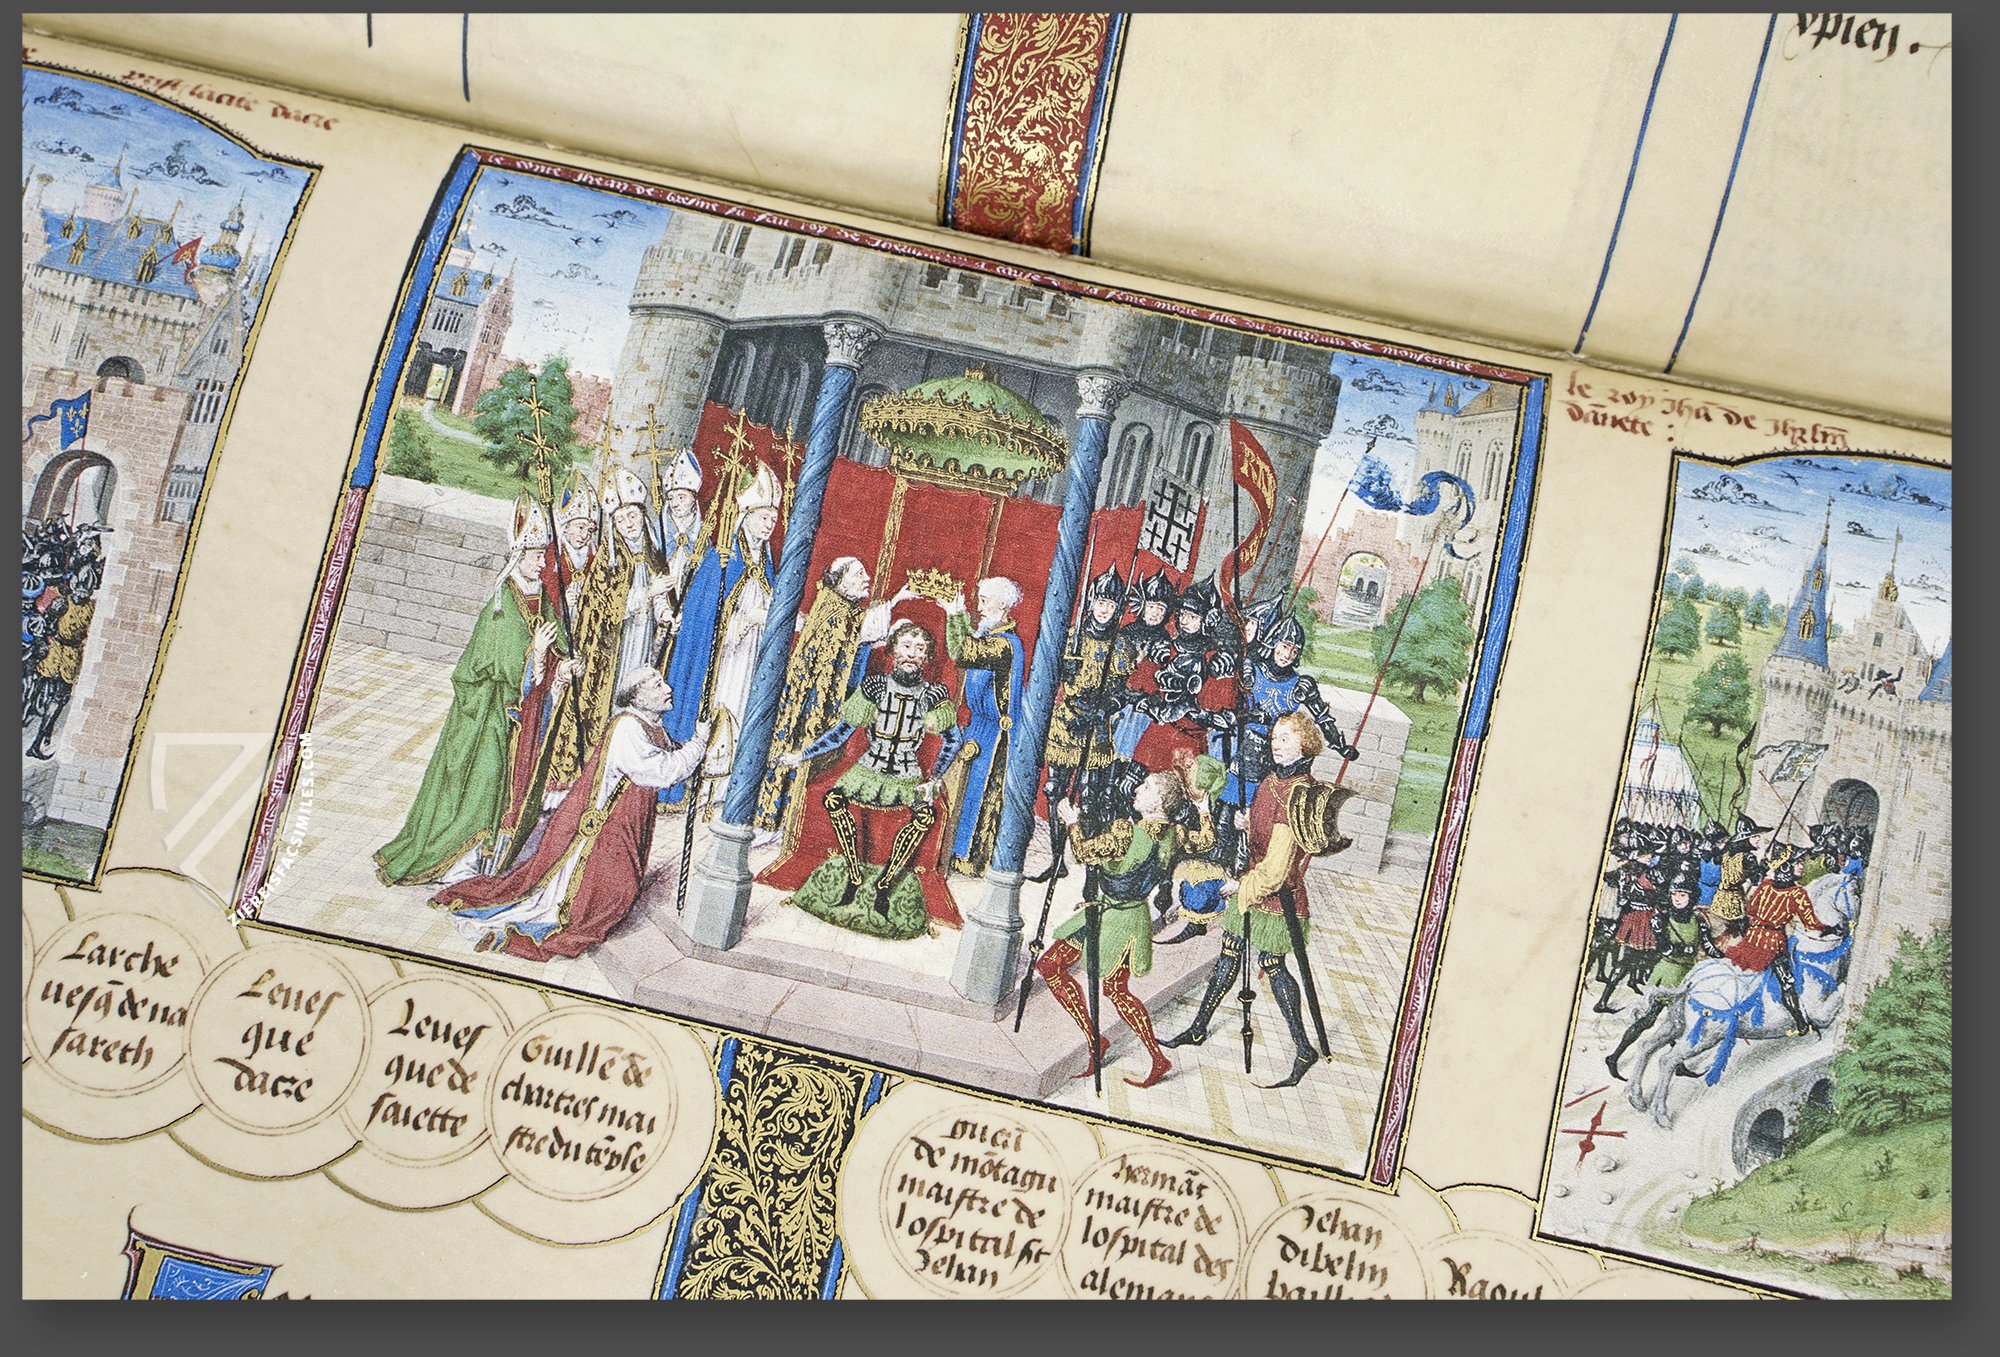 ypien .
le conte Jhean de bresme fu fait roy de Jherusalem a cause de sa feme marie fille du marquis de monferrare
le roy Jhā de Jhrlm̄
dācrete :
Larche
uesq̄ de na
sareth
Leues
que
dacre
Leues
que de
saiette
Guillē de
chartres mai
stre du tēple
de mōtagu
maistre de
lospital st
Jehan
hermāt
maistre de
lospital des
alemans
Jehan
dibelin
baill
Raoul
ZIEREISFACSIMILES.COM